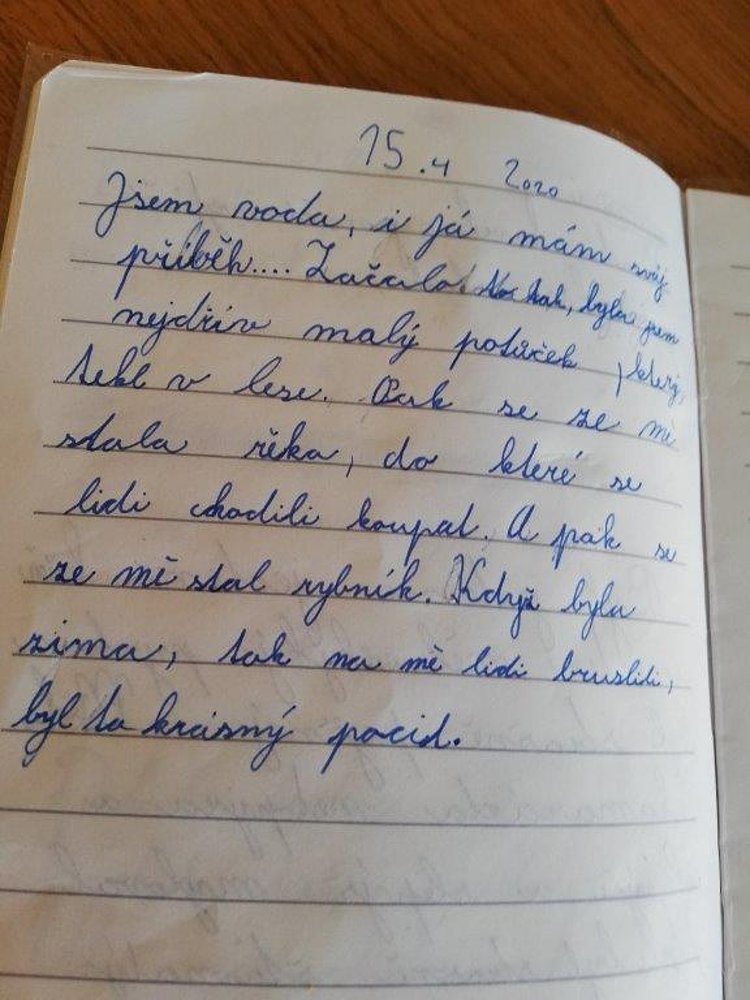 15.4 2020
Jsem voda, i já mám svůj
příběh.... Začalo to tak, byla jsem
nejdřív malý potůček, který
tekl v lese. Pak se ze mě
stala řěka, do které se
lidi chodili koupat. A pak se
ze mě stal rybník. Když byla
zima, tak na mě lidi bruslili,
byl to krásný pocit.